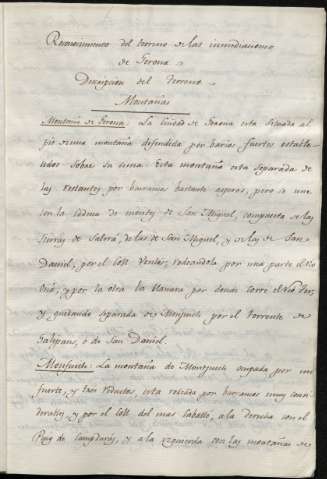 Reconocimiento del terreno de las inmediaciones
de Gerona
Descripcion del Terreno
Montañas
Montaña de Gerona: La Ciudad de Gerona esta Situada al
pie de una montaña difendida por barios fuertes estable
cidos sobre su cima. Esta montaña esta separada de
las restantes por barrancos bastante asperos, pero se une
con la cadena de montes de San Miguel, compuesta de las
Sierras de de las de San Miguel, y de las de San
Daniel, por el Coll rodeandola por una parte el Rio
Oñá, y por la otra la llanura por donde corre el Rio Ter,
y quedando separada de Monjuich por el Torrente de
Galligans, ò de San Daniel.
Monjuich: La montaña de Montjuich ocupada por un
fuerte, y tres reductos, esta rodeada por barrancos muy consi
derables, y por el Coll del mas Caballé, a la derecha con el
Puig de y a la izquierda con las montañas de